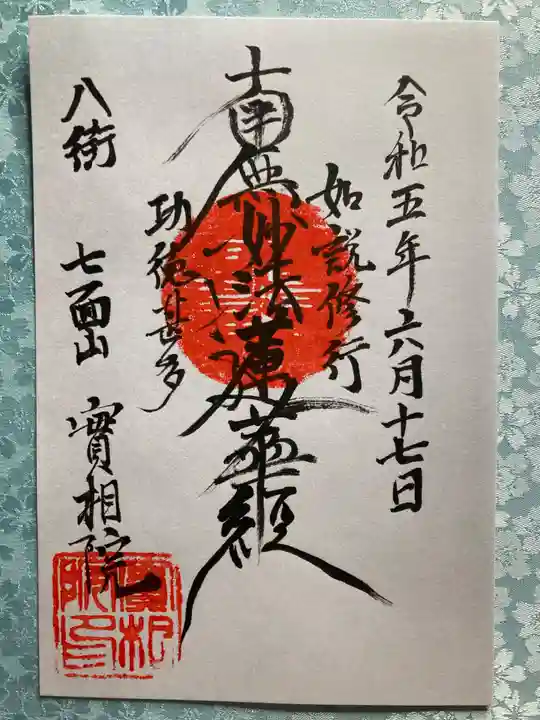 令和五年六月十七日
如説修行
南無妙法蓮華経
功徳甚多
八街 七面山 實相院
實相院印